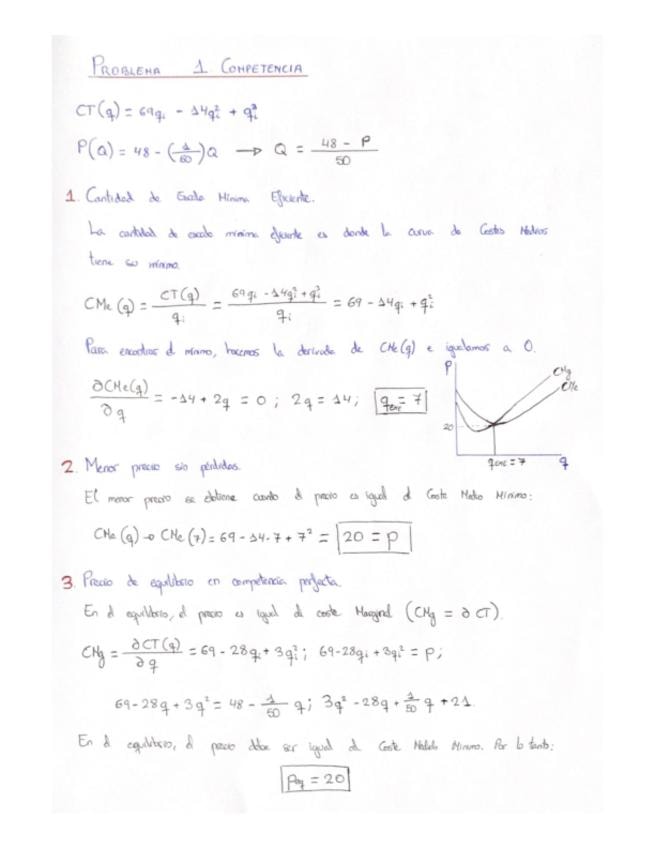 PROBLEMA 1 COMPETENCIA
CT(q) = 69qᵢ - 14qᵢ² + qᵢ³
P(Q) = 48 - (1/50)Q → Q = (48 - P)/50
1. Cantidad de Escala Mínima Eficiente.
La cantidad de escala mínima eficiente es donde la curva de Costes Medios
tiene su mínimo.
CMe(q) = CT(q)/qᵢ = (69qᵢ - 14qᵢ² + qᵢ³)/qᵢ = 69 - 14qᵢ + qᵢ²
Para encontrar el mínimo, hacemos la derivada de CMe(q) e igualamos a 0.
∂CMe(q)/∂q = -14 + 2q = 0 ; 2q = 14 ; q_EME = 7
P
CMg
CMe
20
q_EME = 7
q
2. Menor precio sin pérdidas.
El menor precio se obtiene cuando el precio es igual al Coste Medio Mínimo:
CMe(q) → CMe(7) = 69 - 14·7 + 7² = 20 = p
3. Precio de equilibrio en competencia perfecta.
En el equilibrio, el precio es igual al coste Marginal (CMg = ∂CT).
CMg = ∂CT(q)/∂q = 69 - 28qᵢ + 3qᵢ² ; 69 - 28qᵢ + 3qᵢ² = P ;
69 - 28q + 3q² = 48 - 1/50 q ; 3q² - 28q + 1/50 q + 21
En el equilibrio, el precio debe ser igual al Coste Medio Mínimo. Por lo tanto:
p_eq = 20